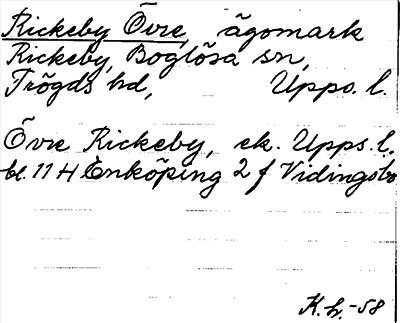 Rickeby Övre, ägomark
Rickeby, Boglösa sn,
Trögds hd, Upps. l.
Övre Rickeby, ek. Upps. l.
bl. 11 H Enköping 2 f Vidingsbo
K.h.-58